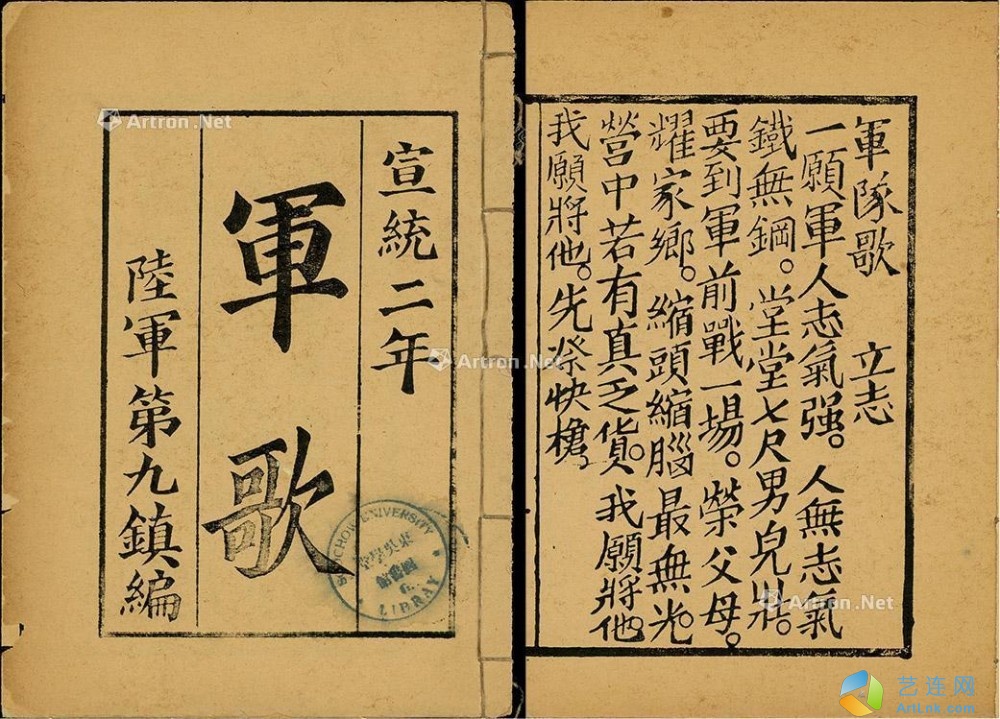 宣統二年
軍歌
陸軍第九鎮編
SOOCHOW UNIVERSITY
LIBRARY
軍隊歌 立志
一願軍人志氣强。人無志氣
鐵無鋼。堂堂七尺男兒壯。
要到軍前戰一場。榮父母。
耀家鄉。縮頭縮腦最無光。
營中若有真乏貨。我願將他
我願將他。先祭快槍。
Artron.Net
Artron.Net
Artron.Net
Artron.Net
艺连网
ArtLok.com